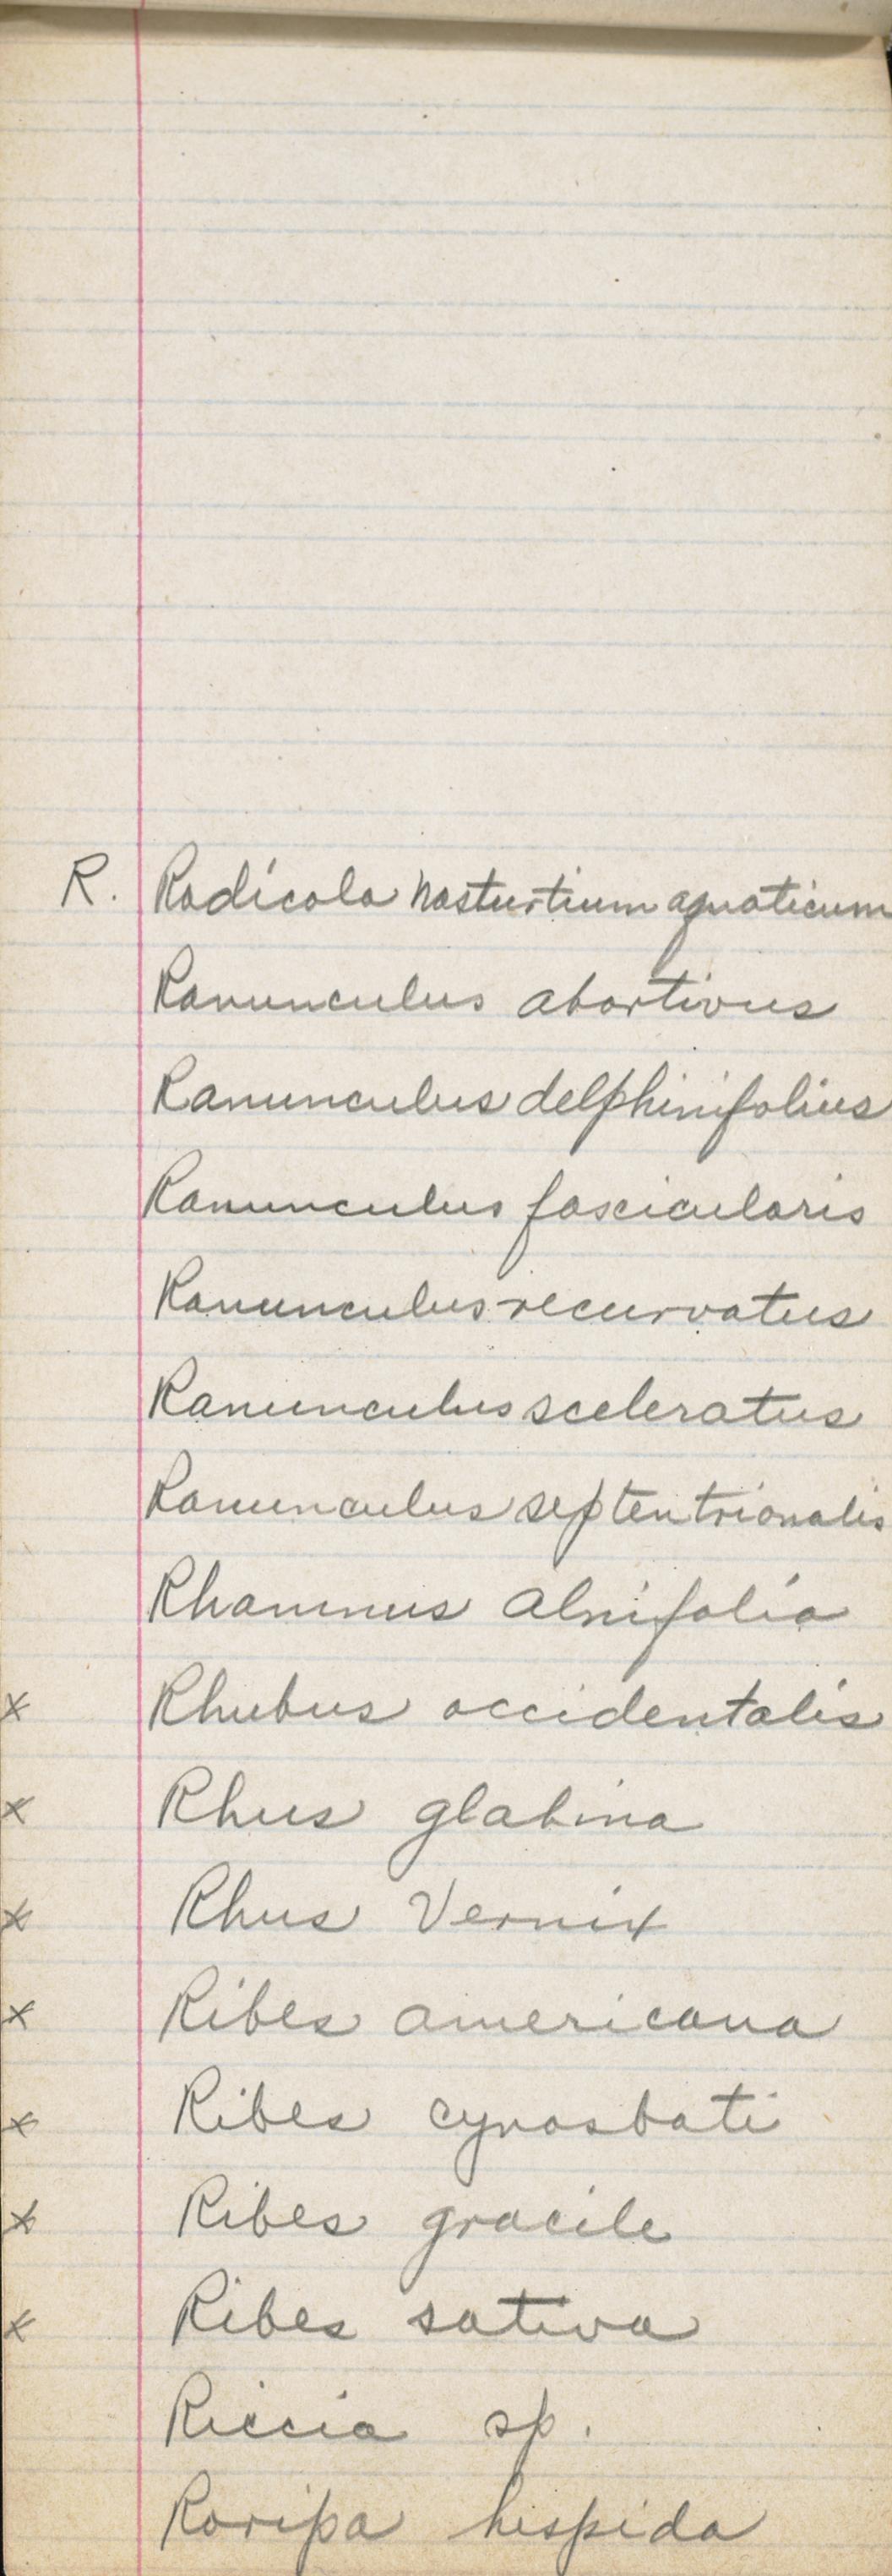 R. Radicola Nasturtium aquaticum
Ranunculus abortivus
Ranunculus delphinifolius
Ranunculus fascicularis
Ranunculus recurvatus
Ranunculus sceleratus
Ranunculus septentrionalis
Rhamnus alnifolia
x Rhubus occidentalis
x Rhus glabina
x Rhus Vernix
x Ribes americana
x Ribes cynosbati
x Ribes gracile
x Ribes sativa
Riccia sp.
Roripa hispida